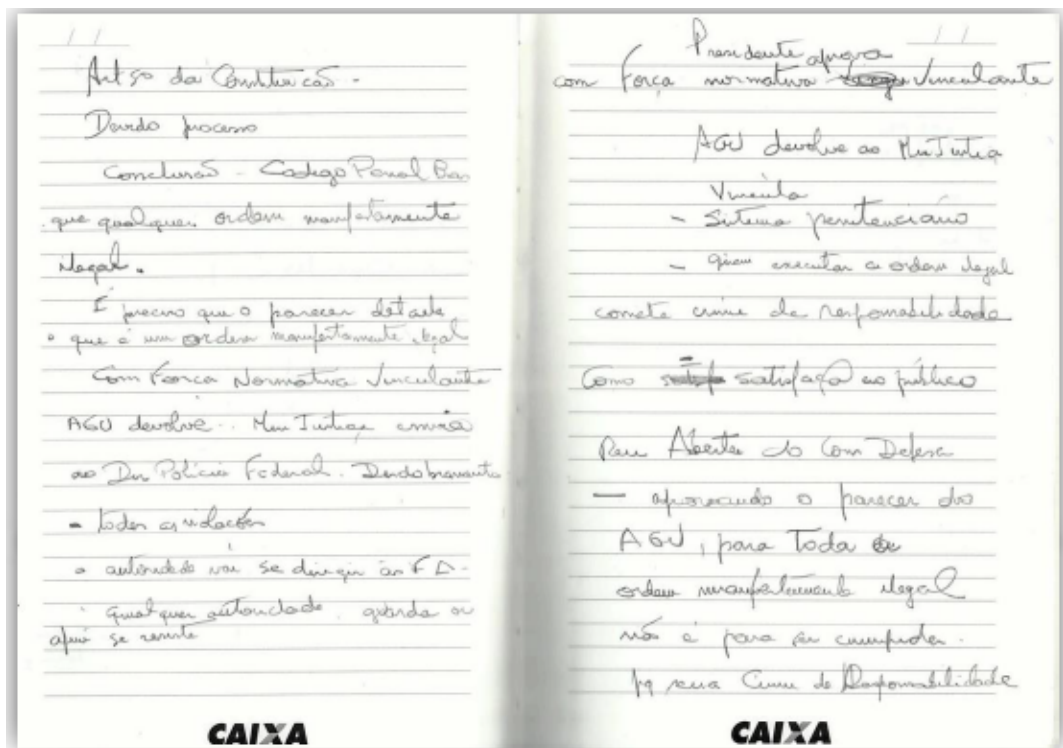 Art 5º da Constituição -
Devido processo
Conclusão - Código Penal
que qualquer ordem manifestamente
ilegal.
É preciso que o parecer detalhe
o que é um ordem manifestamente ilegal
Com Força Normativa Vinculante
AGU devolve. Min Justiça envia
ao Dir Polícia Federal. Desdobramento
- todas as violações
a autoridade vai se dirigir às FA -
qualquer autoridade
se
CAIXA
Presidente aprova
com Força normativa Vinculante
AGU devolve ao Min Justiça
Vincula
- Sistema penitenciário
- quem executar a ordem ilegal
comete crime de responsabilidade
Como satisfação ao público
Aberta do Com Defesa
- aprovando o parecer do
AGU, para Toda
ordem manifestamente ilegal
não é para ser cumprida.
pq seria Crime de Responsabilidade
CAIXA